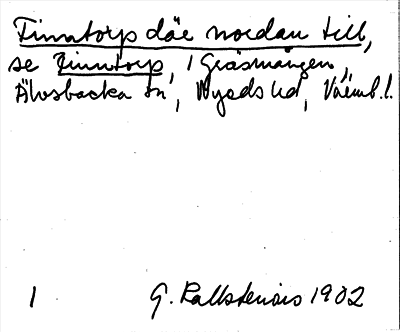 Finntorp däe nordan till,
se Finntorp, 1 Gräsmangen,
Älvsbacka sn, Nyeds hd, Värml.l.
1 G. Kallstenius 1902